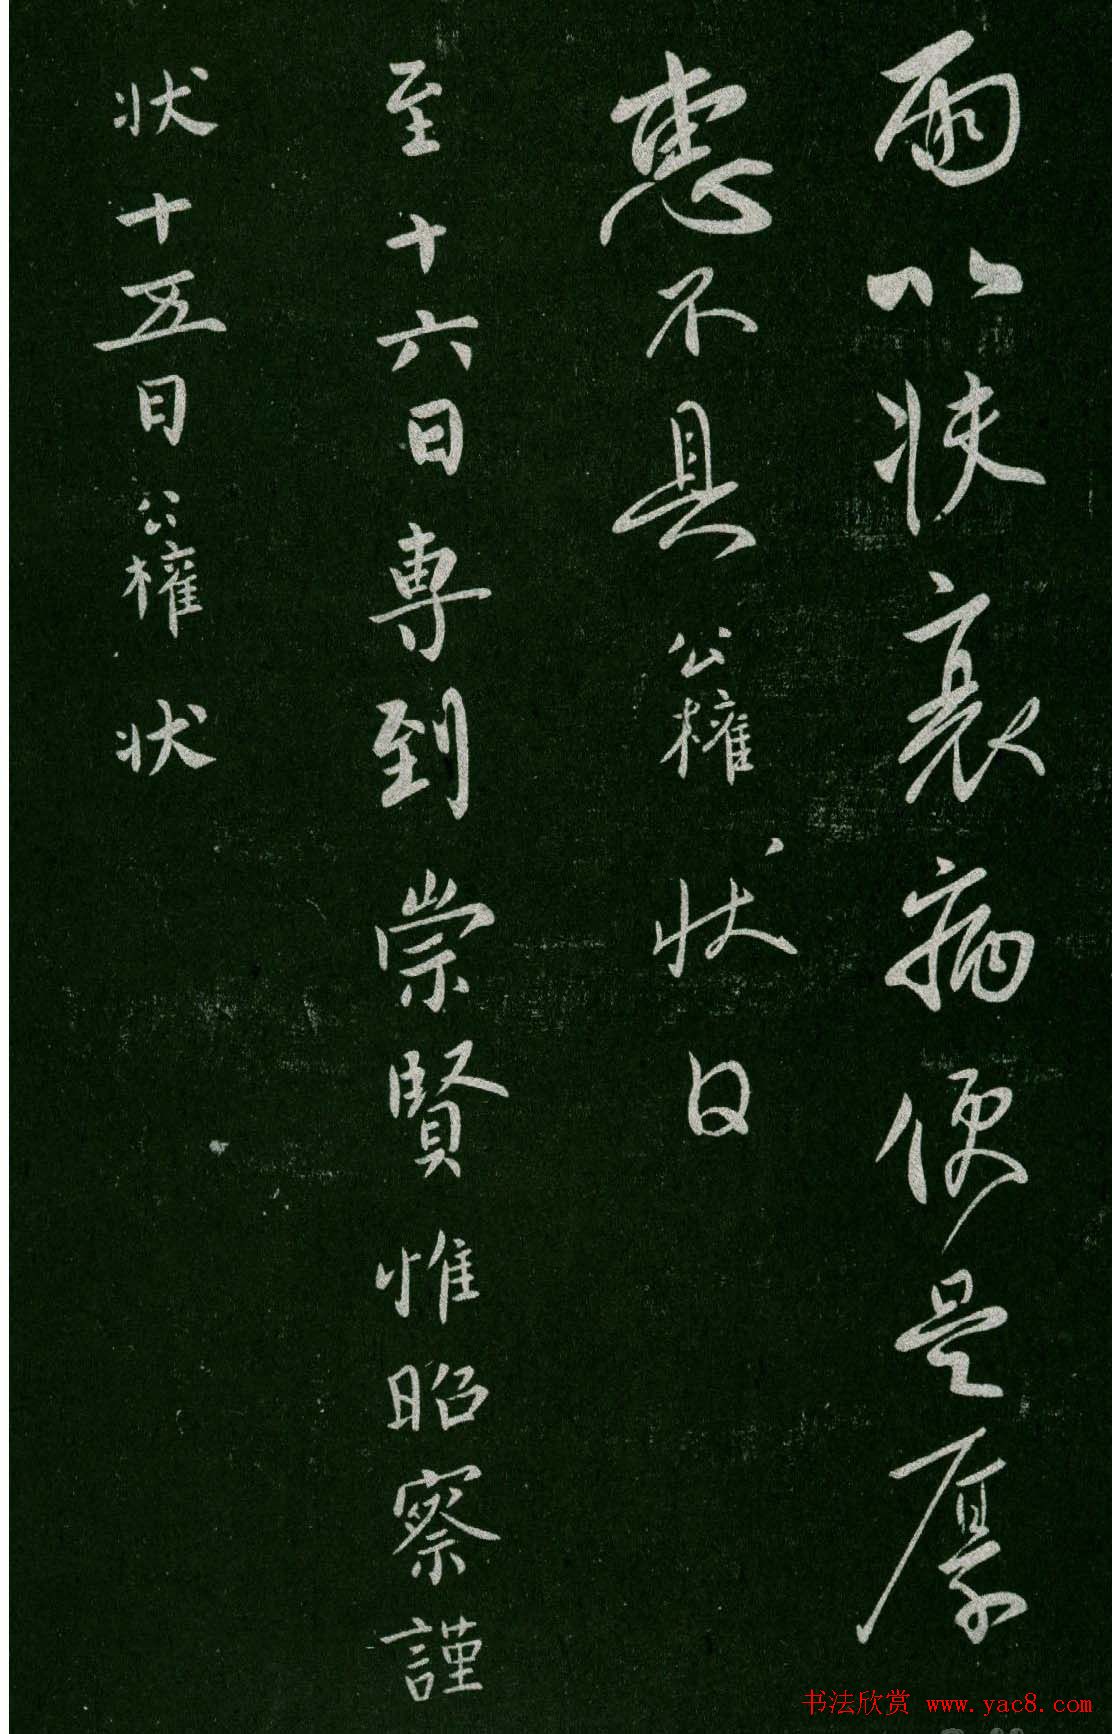 雨以衰病便是厚
惠不具公權状日
至十六日専到崇賢惟昭察謹
状十五日公權状
书法欣赏 www.yac8.com